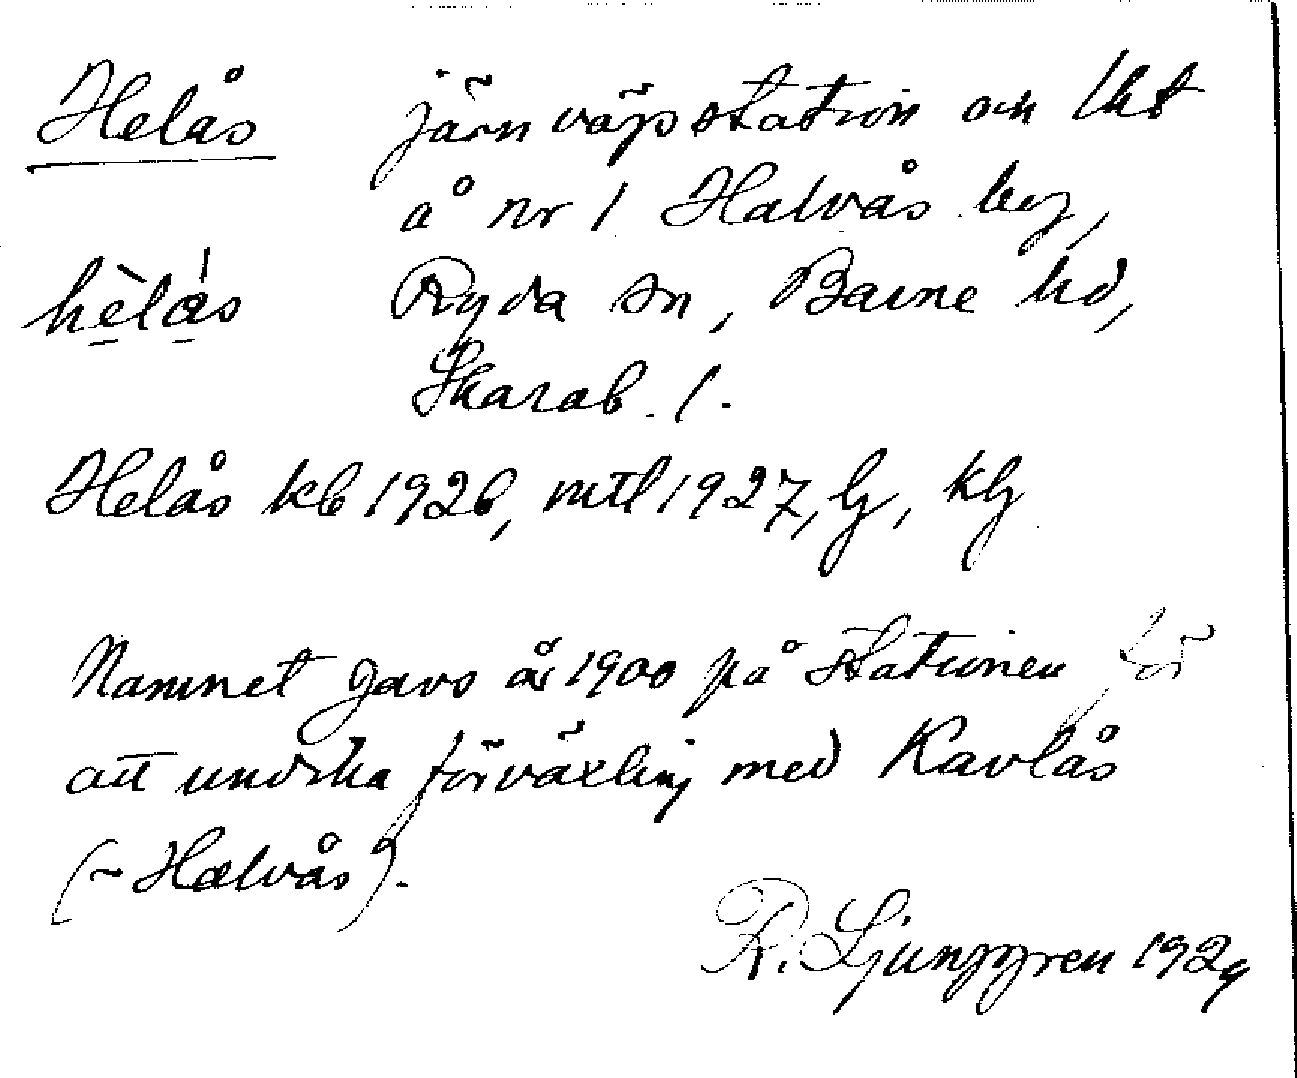 Helås järnvägsstation och lht
å nr 1 Halvås by,
hèlås Ryda sn, Barne hd,
Skarab. l.
Helås kb 1926, mtl 1927, lj, klj
Namnet gavs år 1900 på stationen för
att undvika förväxling med Kavlås
(~ Halvås).
R. Ljunggren 1929